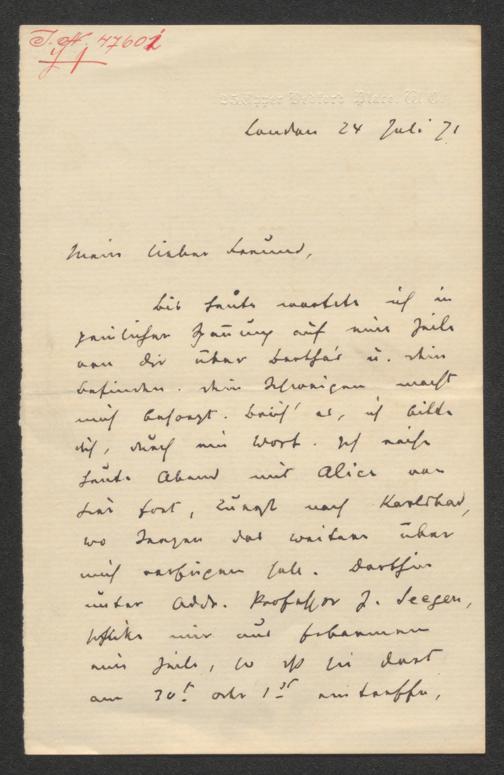 J. N. 47602
35, Upper Bedford Place. W. C.
London 24 Juli 71
Mein lieber Freund,
bis heute wartete ich in
peinlicher Spannung auf eine Zeile
von dir über Bertha's u. dein
befinden. dein Schweigen macht
mich besorgt. Brich' es, ich bitte
dich, durch ein Wort. Ich reise
heute Abend mit Alice von
hier fort, zunächst nach Karlsbad,
wo Seegen das weitere über
mich verfügen soll. Dorthin
unter Addr. Professor J. Seegen,
schicke mir aus Erbarmen
eine Zeile, so daß sie dort
am 30t oder 1st eintreffe,